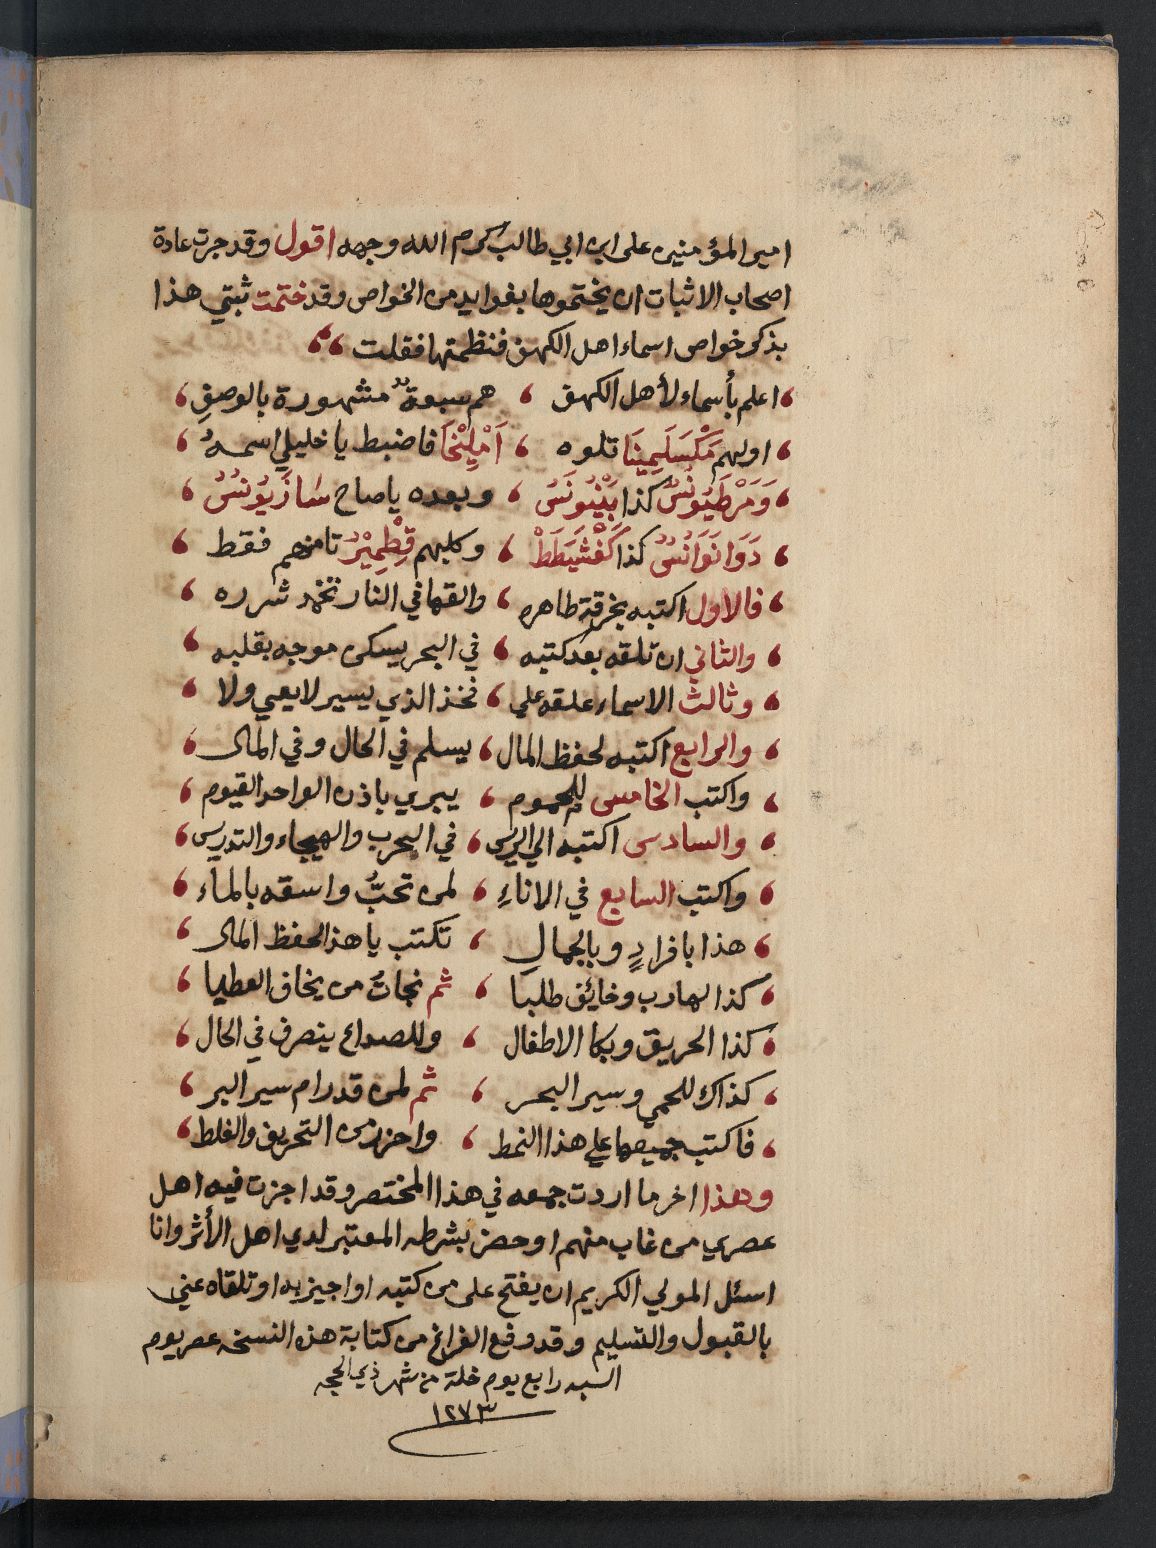 امير المؤمنين على ابن ابي طالب كرم الله وجهه اقول وقد جرت عادة
اصحاب الاثبات ان يختموها بفوايد من الخواص وقد ختمت ثبتي هذا
بذكر خواص اسماء اهل الكهف فنظمتها فقلت
اعلم بأسماء لأهل الكهف ، هم سبعة مشهورة بالوصفِ ،
اولهم مَكْسَلَمِينَا تلوه ، اَمْلِيْخَا فاضبط يا خليلي اسمهُ ،
وَمَرْطَيُونَسُ كذا بَيْنُيونَسُ ، وبعده ياصاح سَازَيُونُسُ ،
دَوَانَوَانُسُ كذا كَفْشَيَطَطْ ، وكلبهم قِطْمِيْرُ ثامنهم فقط ،
فالاول اكتبه بخرقة طاهره ، والقها في النار تخمد شرره ،
والثاني ان تلقه بعد كتبه ، في البحر يسكن موجه بقلبه ،
وثالث الاسماء علقه علي ، فخذ الذي يسير لا يعيي ولا ،
والرابع اكتبه لحفظ المال ، يسلم في الحال وفي المال ،
واكتب الخامس للمحموم ، يبري باذن الواحد القيوم ،
والسادس اكتبه الي الريس ، في الحرب والهيجاء والتدريس ،
واكتب السابع في الاناءِ ، لمن تحبُّ واسقه بالماء ،
هذا بافرادٍ وبالجمالِ ، تكتب يا هذا لحفظ المال ،
كذا لهارب وخائف طلبا ، ثم نجاتُ من يخاف العطبا ،
كذا الحريق وبكا الاطفال ، وللصداع ينصرف في الحال ،
كذاك للحمي وسير البحر ، ثم لمن قد رام سير البر ،
فاكتب جميعها علي هذا النمط ، واحزز من التحريف والغلط ،
وهذا اخر ما اردت جمعه في هذا المختصر وقد اجزت فيه اهل
عصري من غاب منهم او حضر بشرطه المعتبر لدي اهل الأثر وانا
اسئل المولي الكريم ان يفتح على من كتبه او اجيز به او تلقاه عني
بالقبول والتسليم وقد وقع الفراغ من كتابة هذه النسخه عصر يوم
السبه رابع يوم خلة من شهر ذي الحجه
١٢٧٣